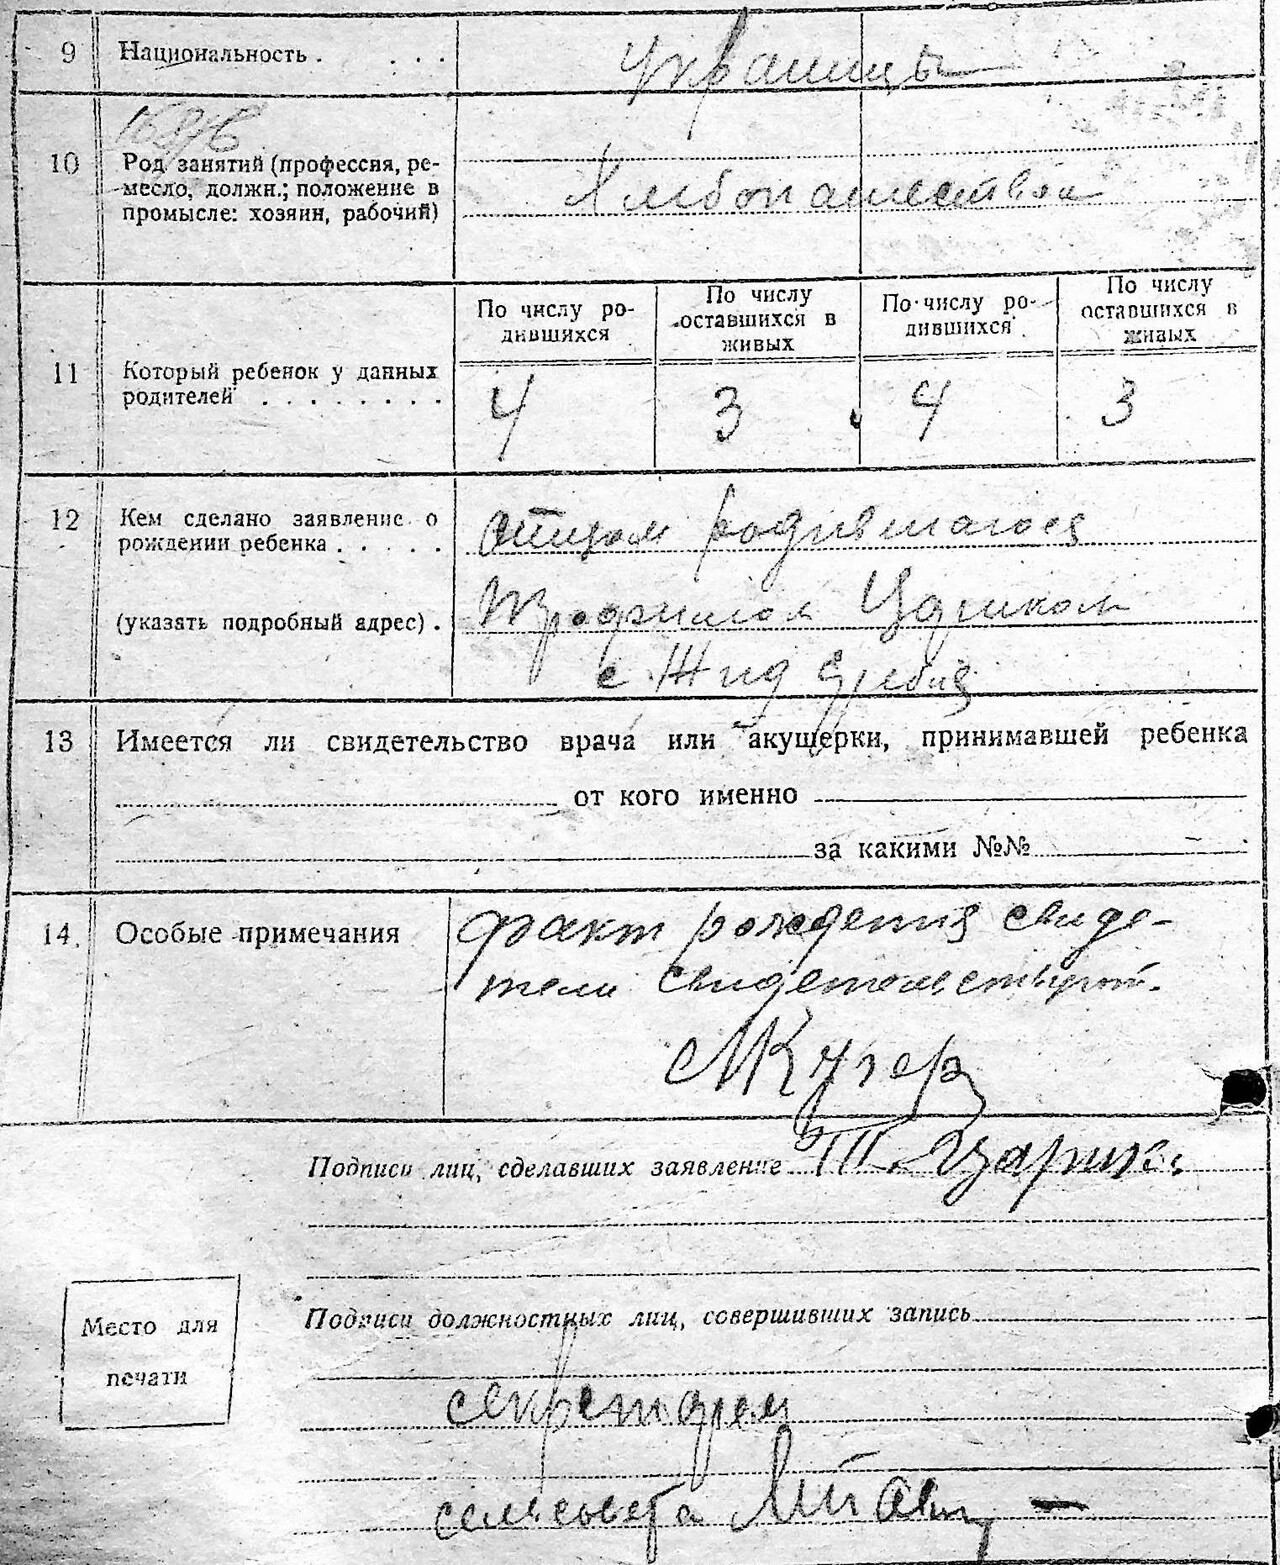 9 Национальность . . . . украинцы
10 Род занятий (профессия, ре-
месло, должн.; положение в
промысле: хозяин, рабочий)
Хлебопашество
11 Который ребенок у данных
родителей . . . . . . . .
По числу ро-
дившихся
По числу
оставшихся в
живых
По числу ро-
дившихся
По числу
оставшихся в
живых
4 3 4 3
12 Кем сделано заявление о
рождении ребенка . . . . .
(указать подробный адрес) .
отцом родившагося
Трофимом Цариком
с. Жид
13 Имеется ли свидетельство врача или акушерки, принимавшей ребенка
от кого именно
за какими №№
14. Особые примечания
факт рождения свиде-
тели свидетельствуют.
Подписи лиц, сделавших заявление Т. Царик
Место для
печати
Подписи должностных лиц, совершивших запись
секретарем
сельсовета